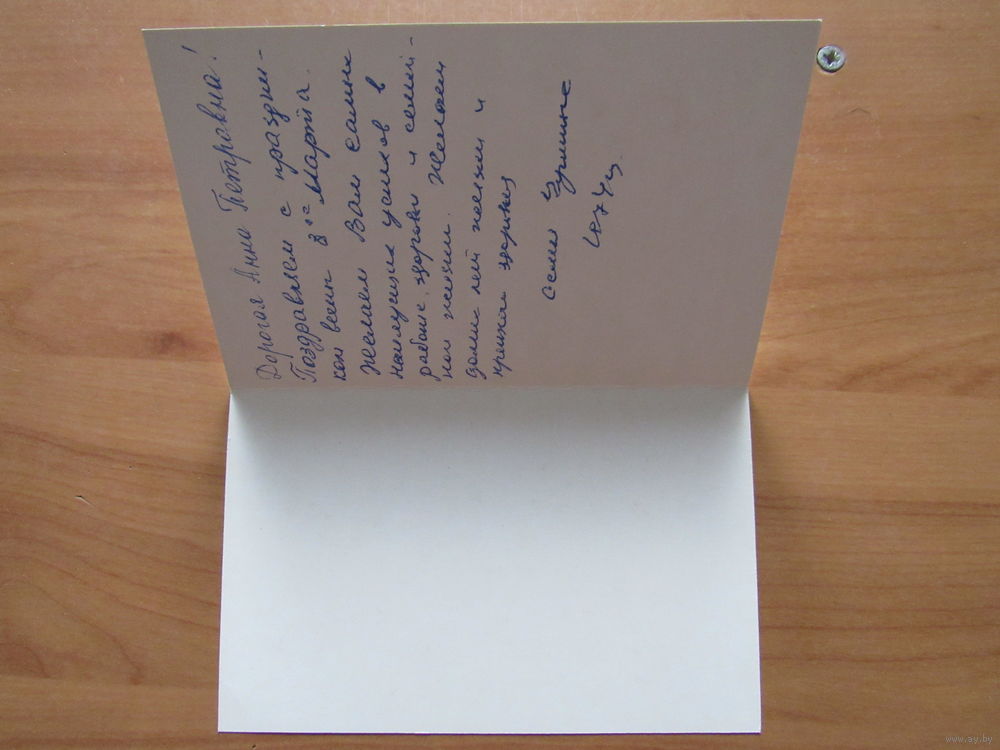 Дорогая Анна Петровна!
Поздравляем с праздни-
ком весны 8ое Марта.
Желаем Вам самых
наилучших успехов в
работе, здоровья и семей-
ной жизни. Желаем
долгих лет жизни и
крепкого здоровья
семья
1974г.
www.ay.by